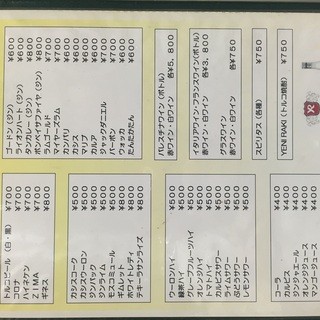 トルコビール（白・黒） ¥700
コロナ ¥700
ハイネケン ¥700
ZIMA ¥700
ギネス ¥800
カシスコーク
カシスウーロン
ジンバック
ジントニック
ジンライム
モスコミュール
ギムレット
ホワイトレディ
テキーラサンライズ ¥800
ウーロンハイ ¥500
緑茶ハイ ¥500
グレープフルーツハイ ¥500
オレンジハイ ¥500
トマトハイ ¥500
カルピスサワー ¥500
ライムサワー ¥500
ぶどうサワー ¥500
レモンサワー ¥500
コーラ ¥400
カルピス ¥400
ジンジャエール ¥400
オレンジジュース ¥400
マンゴージュース ¥400
ゴードン（ジン） ¥600
ライオンハート（ジン） ¥600
タンカレー（ジン）
ボンベイサファイヤ（ジン）
ラムゴールド
マイヤーズラム
カンパリ
カシス ¥600
マリブ ¥600
カルア ¥600
ジャックダニエル
バーボン
ウォッカ ¥600
たんたかたん ¥600
パレスチナワイン（ボトル）
赤ワイン・白ワイン 各¥5,800
イタリアワイン・フランスワイン（ボトル）
赤ワイン・白ワイン 各¥3,800
グラスワイン
赤ワイン・白ワイン 各¥750
スピリタス（各種） ¥750
YENI RAKI（トルコ焼酎） ¥750